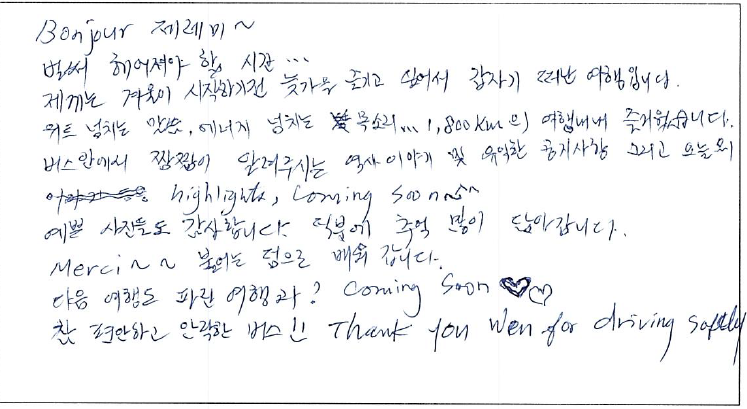 Bonjour 제레미~
벌써 헤어져야 할 시간...
제게는 겨울이 시작하기전 늦가을 즐기고 싶어서 갑자기 떠난 여행입니다.
위트 넘치는 말씀, 에너지 넘치는 목소리... 1,800km의 여행내내 즐거웠습니다.
버스안에서 짬짬이 알려주시는 역사이야기 및 유익한 공지사항 그리고 오늘의
highlights, coming soon~^^
예쁜 사진들도 감사합니다. 덕분에 추억 많이 담아갑니다.
Merci~~ 불어는 덤으로 배워 갑니다.
다음 여행도 파란 여행과? Coming Soon ♥♡
참 편안하고 안락한 버스!! Thank you Wen for driving softly